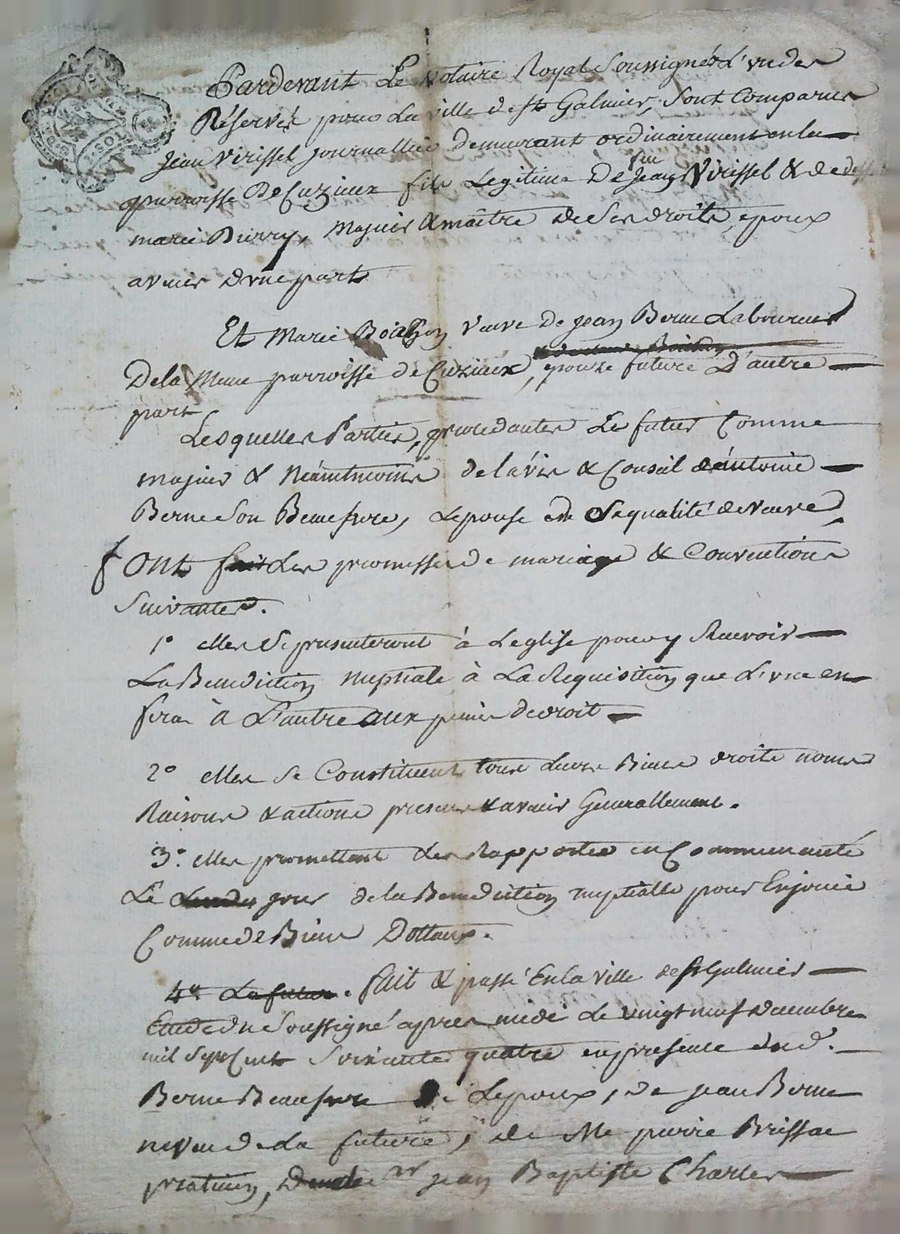 Pardevant Le Notaire Royal Soussigné L'un des
Réservés pour La ville de st Galmier, sont Comparus
Jean Virissel journallier demeurant ordinairement en la
parroisse De Cuzieux fils Legitime De feu Jean Virissel & de
marie Burry, majeur & maître de ses droits, epoux
avenir d'une part
Et Marie Boichon veuve de jean Berne Laboureur
De la Meme parroisse de Cuzieux, epouze future D'autre
part
Lesquelles Parties, procedantes Le futur Comme
majeur & Néantmoins de l'avis & Conseil d'antoine
Berne Son Beaufrere, Lepouse en Sa qualité de veuve,
Ont fait Les promesses de mariage & Conventions
Suivantes.
1° elles Se presenteront à Leglise pour y Recevoir
La Benediction nuptiale à La Requisition que L'une en
fera à L'autre aux peines de droit
2° elles Se Constituent tous Leurs Biens droits noms
Raisons & actions presens & avenir Generallement.
3° elles promettent Les Rapporter en Communauté
Le jour de la Benediction nuptialle pour En jouir
Comme de Biens Dottaux.
4° La future. fait & passé En la ville de st Galmier
Etude du Soussigné apres midi Le vingt neuf decembre
mil Sept Cent Soixante quatre en presence dud.
Berne Beaufrere de Lepoux, de jean Berne
neveu de La future, & de Me pierre Brissac
praticien, jean Baptiste Charles
1·SOL